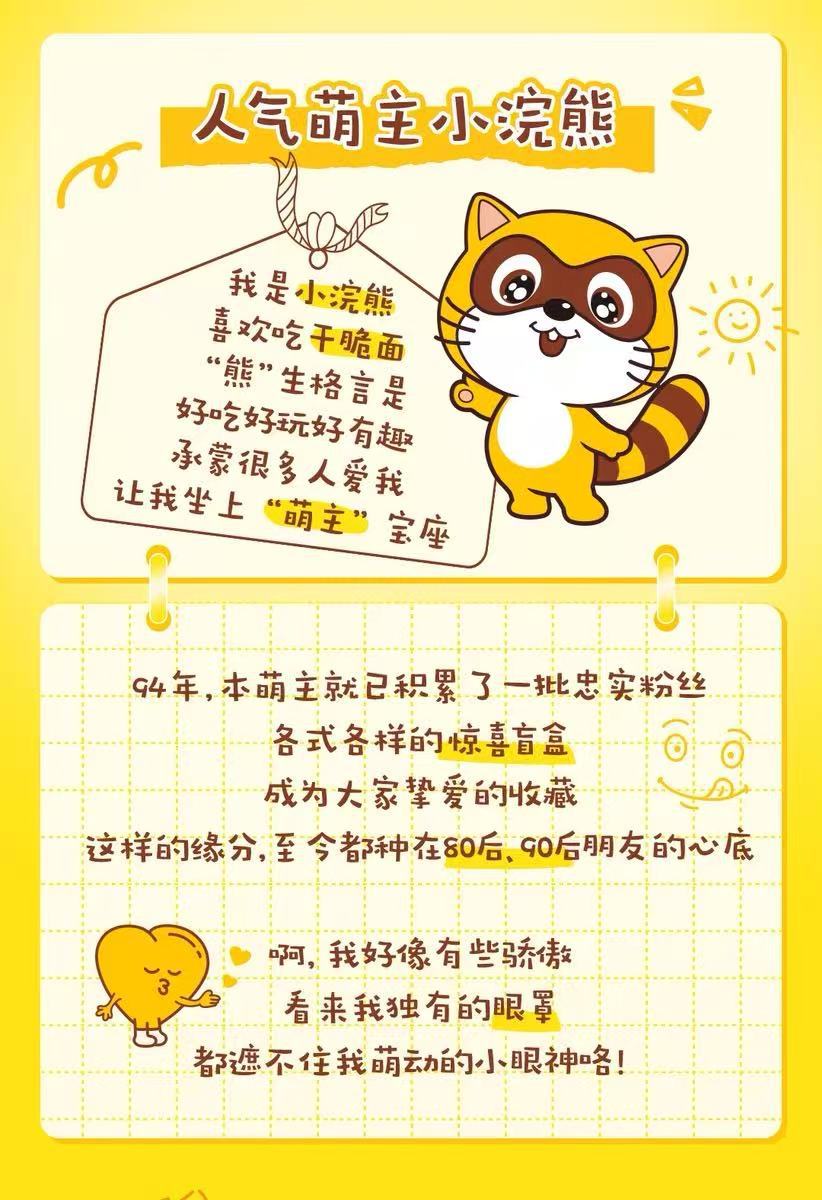 人气萌主小浣熊
我是小浣熊
喜欢吃干脆面
“熊”生格言是
好吃好玩好有趣
承蒙很多人爱我
让我坐上“萌主”宝座
94年,本萌主就已积累了一批忠实粉丝
各式各样的惊喜盲盒
成为大家挚爱的收藏
这样的缘分,至今都种在80后、90后朋友的心底
啊,我好像有些骄傲
看来我独有的眼罩
都遮不住我萌动的小眼神咯!